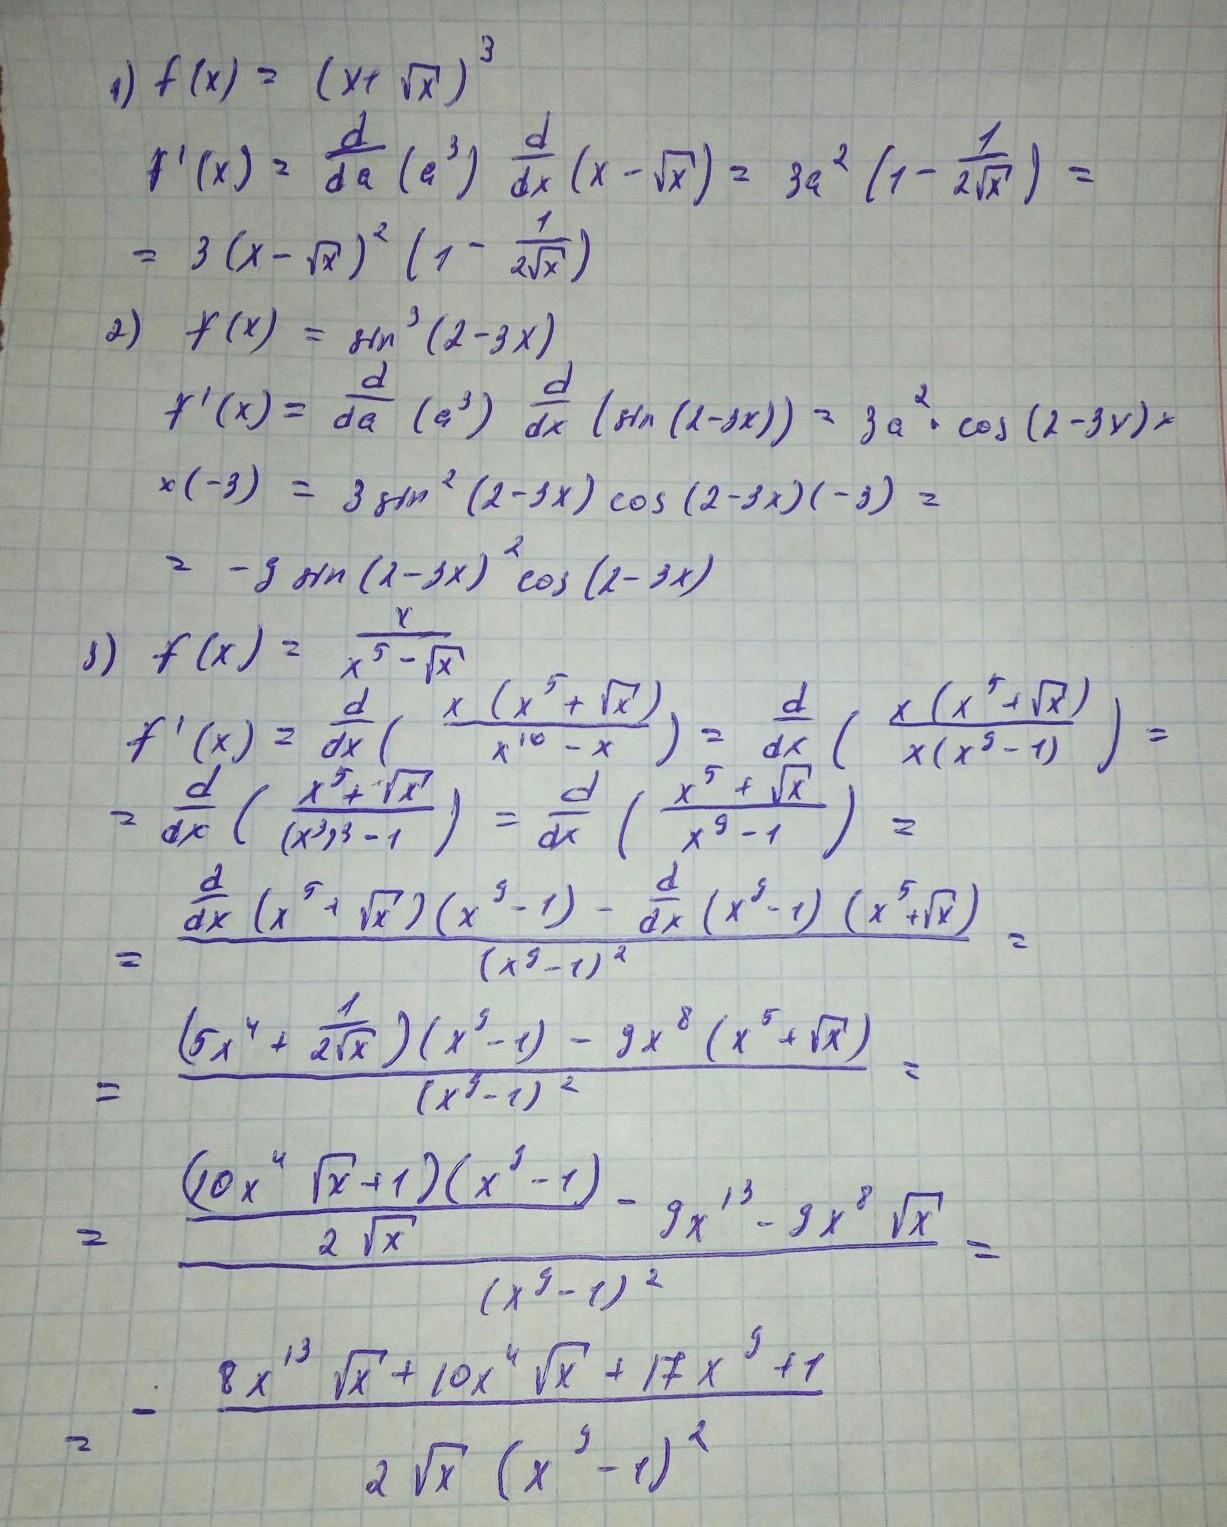 1) f(x) = (x+ √x)³
f'(x) = d/da (a³) d/dx (x - √x) = 3a² (1 - 1/(2√x)) =
= 3 (x - √x)² (1 - 1/(2√x))
2) f(x) = sin³ (2-3x)
f'(x) = d/da (a³) d/dx (sin (2-3x)) = 3a² · cos (2-3x) ×
×(-3) = 3 sin² (2-3x) cos (2-3x)(-3) =
= -9 sin (2-3x)² cos (2-3x)
3) f(x) = x/(x⁵ - √x)
f'(x) = d/dx ( x (x⁵ + √x)/(x¹⁰ - x) ) = d/dx ( x (x⁵ + √x)/(x(x⁹ - 1)) ) =
= d/dx ( (x⁵ + √x)/((x³)³ - 1) ) = d/dx ( (x⁵ + √x)/(x⁹ - 1) ) =
= (d/dx (x⁵ + √x)(x⁹ - 1) - d/dx (x⁹ - 1) (x⁵ + √x))/(x⁹ - 1)² =
= ((5x⁴ + 1/(2√x))(x⁹ - 1) - 9x⁸ (x⁵ + √x))/(x⁹ - 1)² =
= ((10x⁴ √x + 1)(x⁹ - 1)/(2√x) - 9x¹³ - 9x⁸ √x)/(x⁹ - 1)² =
= - (8x¹³ √x + 10x⁴ √x + 17x⁹ + 1)/(2√x (x⁹ - 1)²)